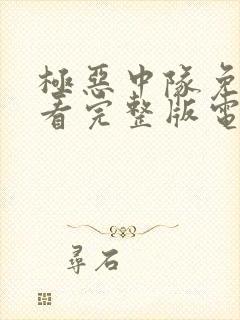 極惡中隊免
看完整版電
尋石